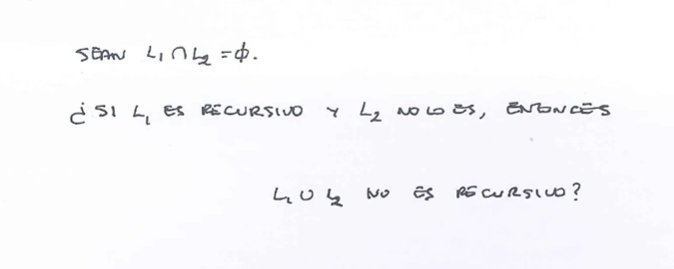 SEAN L₁ ∩ L₂ = ∅.
¿SI L₁ ES RECURSIVO Y L₂ NO LO ES, ENTONCES
L₁ ∪ L₂ NO ES RECURSIVO?